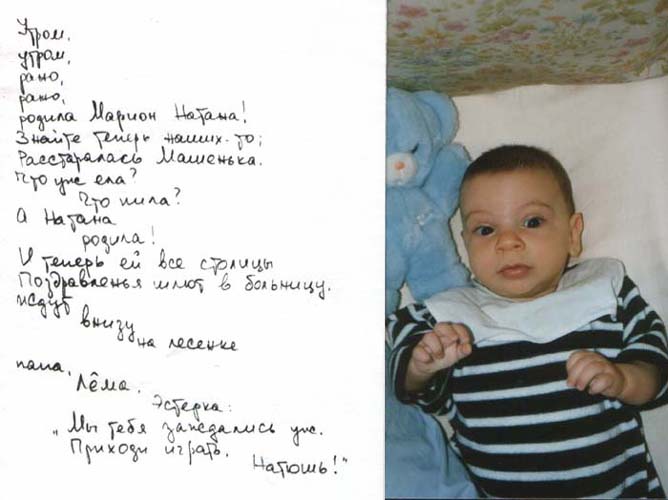 Утром,
утром,
рано,
рано,
родила Марион Натана!
Знайте теперь наших-то;
Расстаралась Машенька.
Что уж ела?
Что пила?
А Натана
родила!
И теперь ей все столицы
Поздравленья шлют в больницу.
Ждут
внизу
на лесенке
папа,
Лёма,
Эстерка:
„Мы тебя заждались уж.
Приходи играть.
Натюшь!"